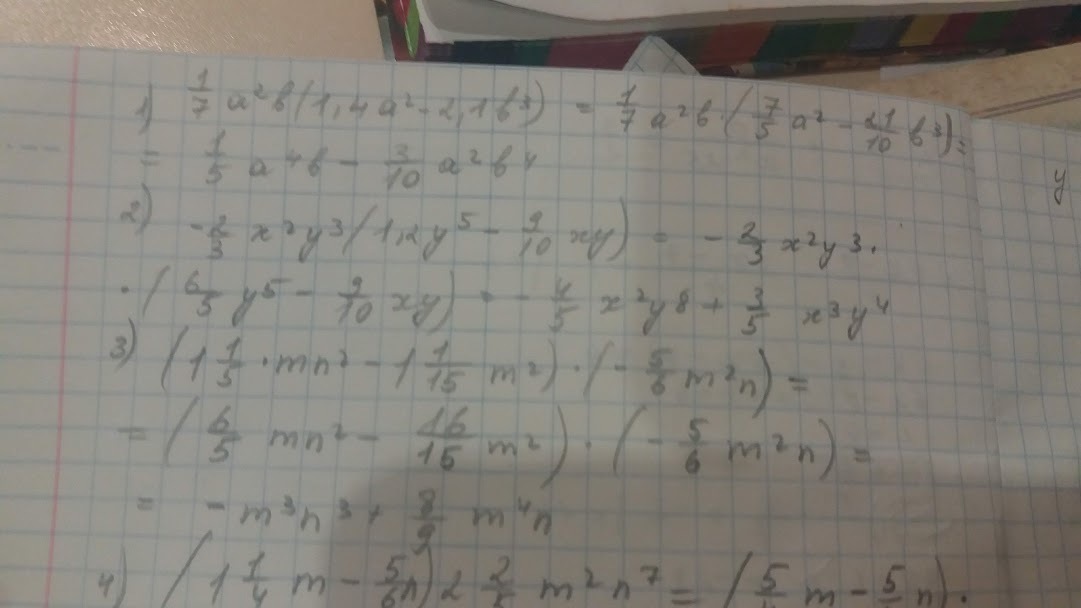 1) 1/7 a²b(1,4a² - 2,1b³) = 1/7 a²b·(7/5 a² - 21/10 b³) =
= 1/5 a⁴b - 3/10 a²b⁴
2) -2/3 x²y³(1,2y⁵ - 9/10 xy) = -2/3 x²y³·
·(6/5 y⁵ - 9/10 xy) = -4/5 x²y⁸ + 3/5 x³y⁴
3) (1 1/5 · mn² - 1 1/15 m²)·(-5/6 m²n) =
= (6/5 mn² - 16/15 m²)·(-5/6 m²n) =
= -m³n³ + 8/9 m⁴n
4) (1 1/4 m - 5/6 n) 2 m²n⁷ = (5 m - 5 n)·
y